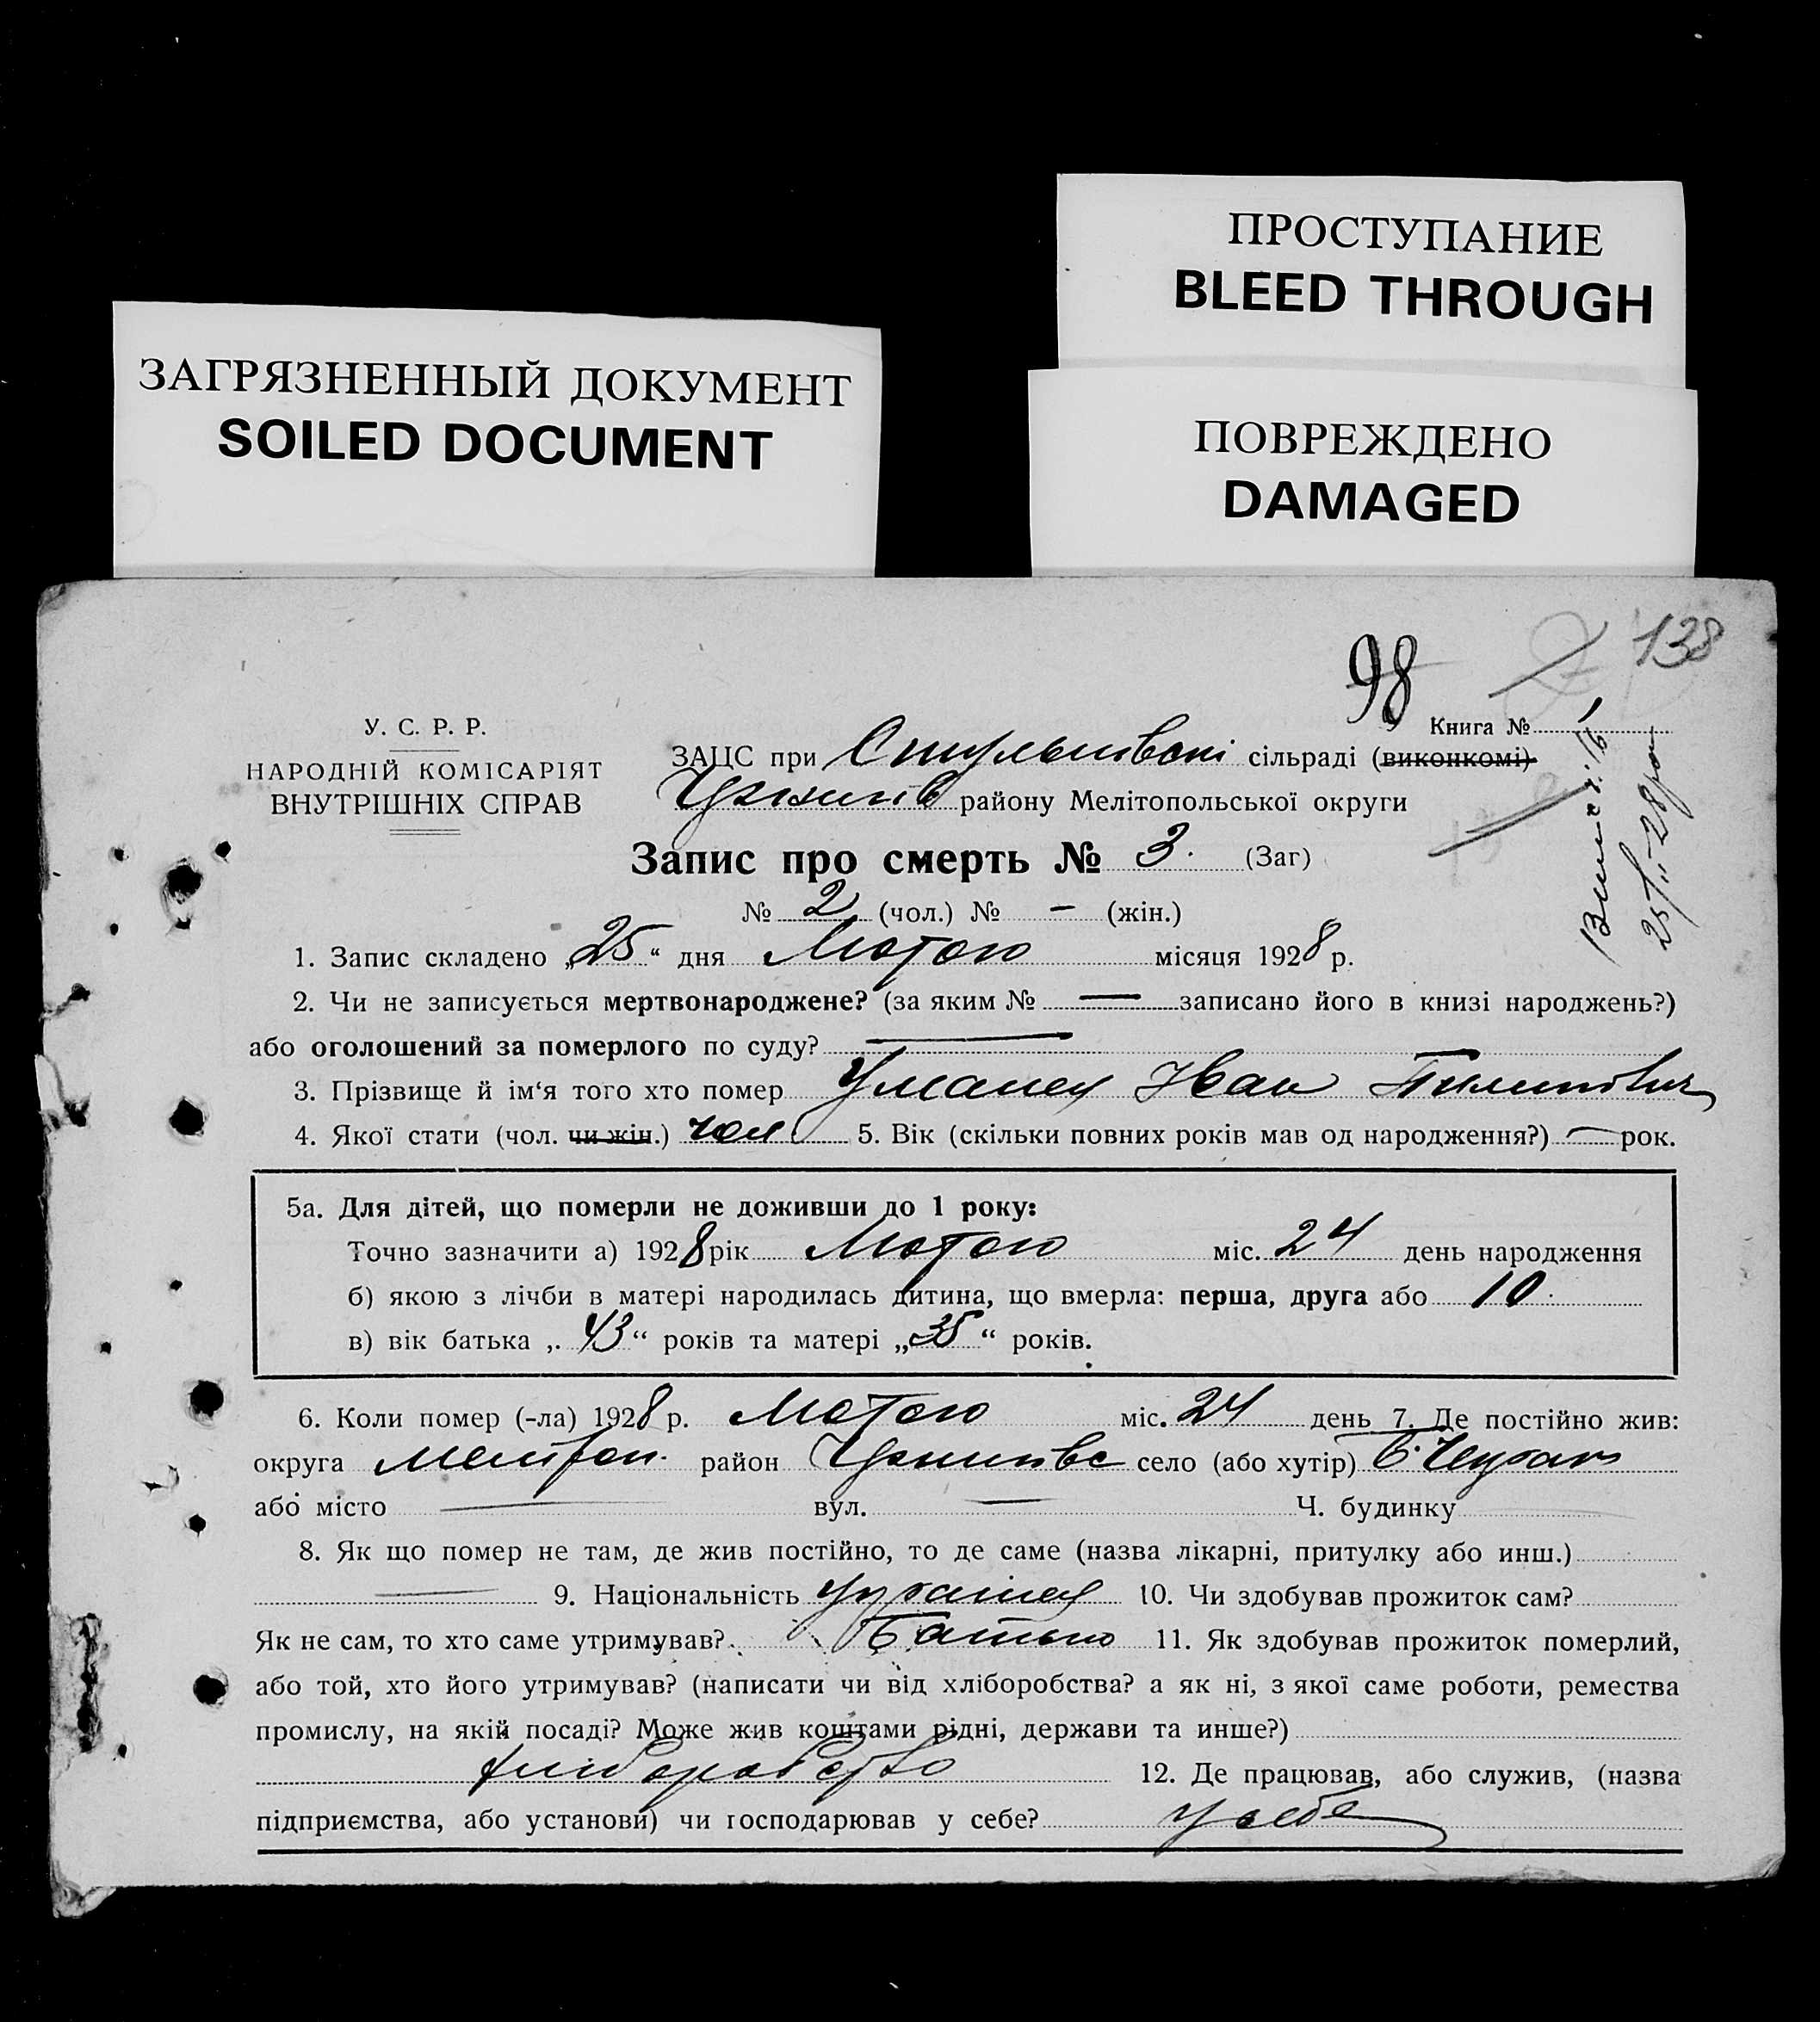 ПРОСТУПАНИЕ
BLEED THROUGH
ЗАГРЯЗНЕННЫЙ ДОКУМЕНТ
SOILED DOCUMENT
ПОВРЕЖДЕНО
DAMAGED
98
138
У. С. Р. Р.
НАРОДНІЙ КОМІСАРІЯТ
ВНУТРІШНІХ СПРАВ
Книга №
ЗАЦС при сільраді (виконкомі)
району Мелітопольської округи
25/II-28
Запис про смерть № 3. (Заг)
№ 2 (чол.) № — (жін.)
1. Запис складено „25“ дня Лютого місяця 1928 р.
2. Чи не записується мертвонароджене? (за яким № — записано його в книзі народжень?)
або оголошений за померлого по суду? —
3. Прізвище й ім‘я того хто помер Уманец Иван Пилипович
4. Якої стати (чол. чи жін.) чол. 5. Вік (скільки повних років мав од народження?) — рок.
5а. Для дітей, що померли не доживши до 1 року:
Точно зазначити а) 1928 рік Лютого міс. 24 день народження
б) якою з лічби в матері народилась дитина, що вмерла: перша, друга або 10.
в) вік батька „ 43“ років та матері „35“ років.
6. Коли помер (-ла) 1928 р. Лютого міс. 24 день 7. Де постійно жив:
округа Мелітоп. район село (або хутір)
або місто — вул. — Ч. будинку
8. Як що помер не там, де жив постійно, то де саме (назва лікарні, притулку або инш.)
— 9. Національність Українец 10. Чи здобував прожиток сам?
Як не сам, то хто саме утримував? Батько 11. Як здобував прожиток померлий,
або той, хто його утримував? (написати чи від хліборобства? а як ні, з якої саме роботи, ремества
промислу, на якій посаді? Може жив коштами рідні, держави та инше?)
хліборобство 12. Де працював, або служив, (назва
підприємства, або установи) чи господарював у себе? У себе